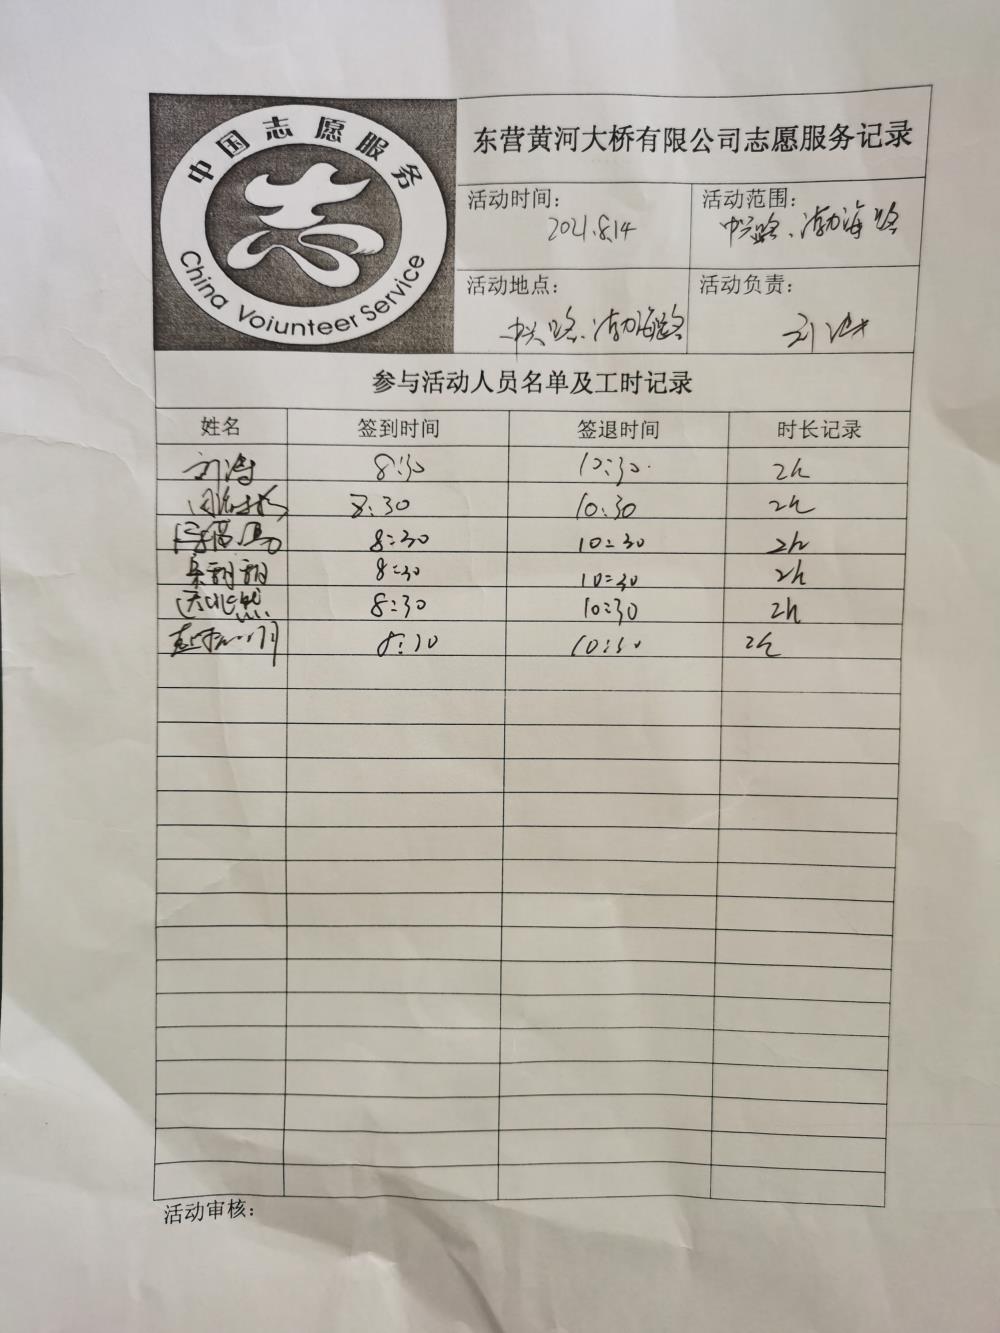 中国志愿服务
China Voiunteer Service
东营黄河大桥有限公司志愿服务记录
活动时间：
2021.8.14
活动范围：
渤海路
活动地点：
路、渤海路
活动负责：
刘涛
参与活动人员名单及工时记录
姓名 签到时间 签退时间 时长记录
刘涛 8:30 10:30 2h
8:30 10:30 2h
8:30 10:30 2h
8:30 10:30 2h
8:30 10:30 2h
8:30 10:30 2h
活动审核：